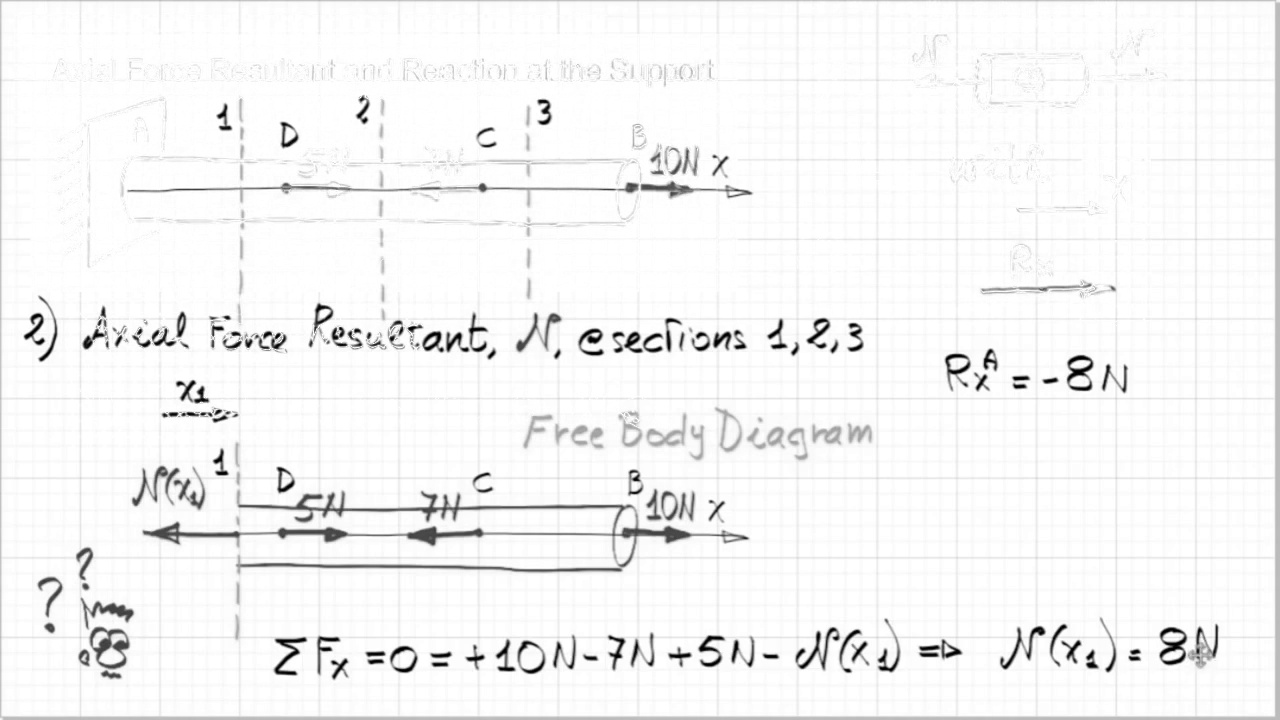 Axial Force Resultant and Reaction at the Support
N N
1 2 3
A D C B
5N 7N 10N x
with x
Rx
2) Axial Force Resultant, N, @sections 1,2,3
RxA = -8N
x1
Free Body Diagram
1
N(x1) D 5N 7N C B 10N x
? ?
ΣFx = 0 = +10N - 7N + 5N - N(x1) => N(x1) = 8N